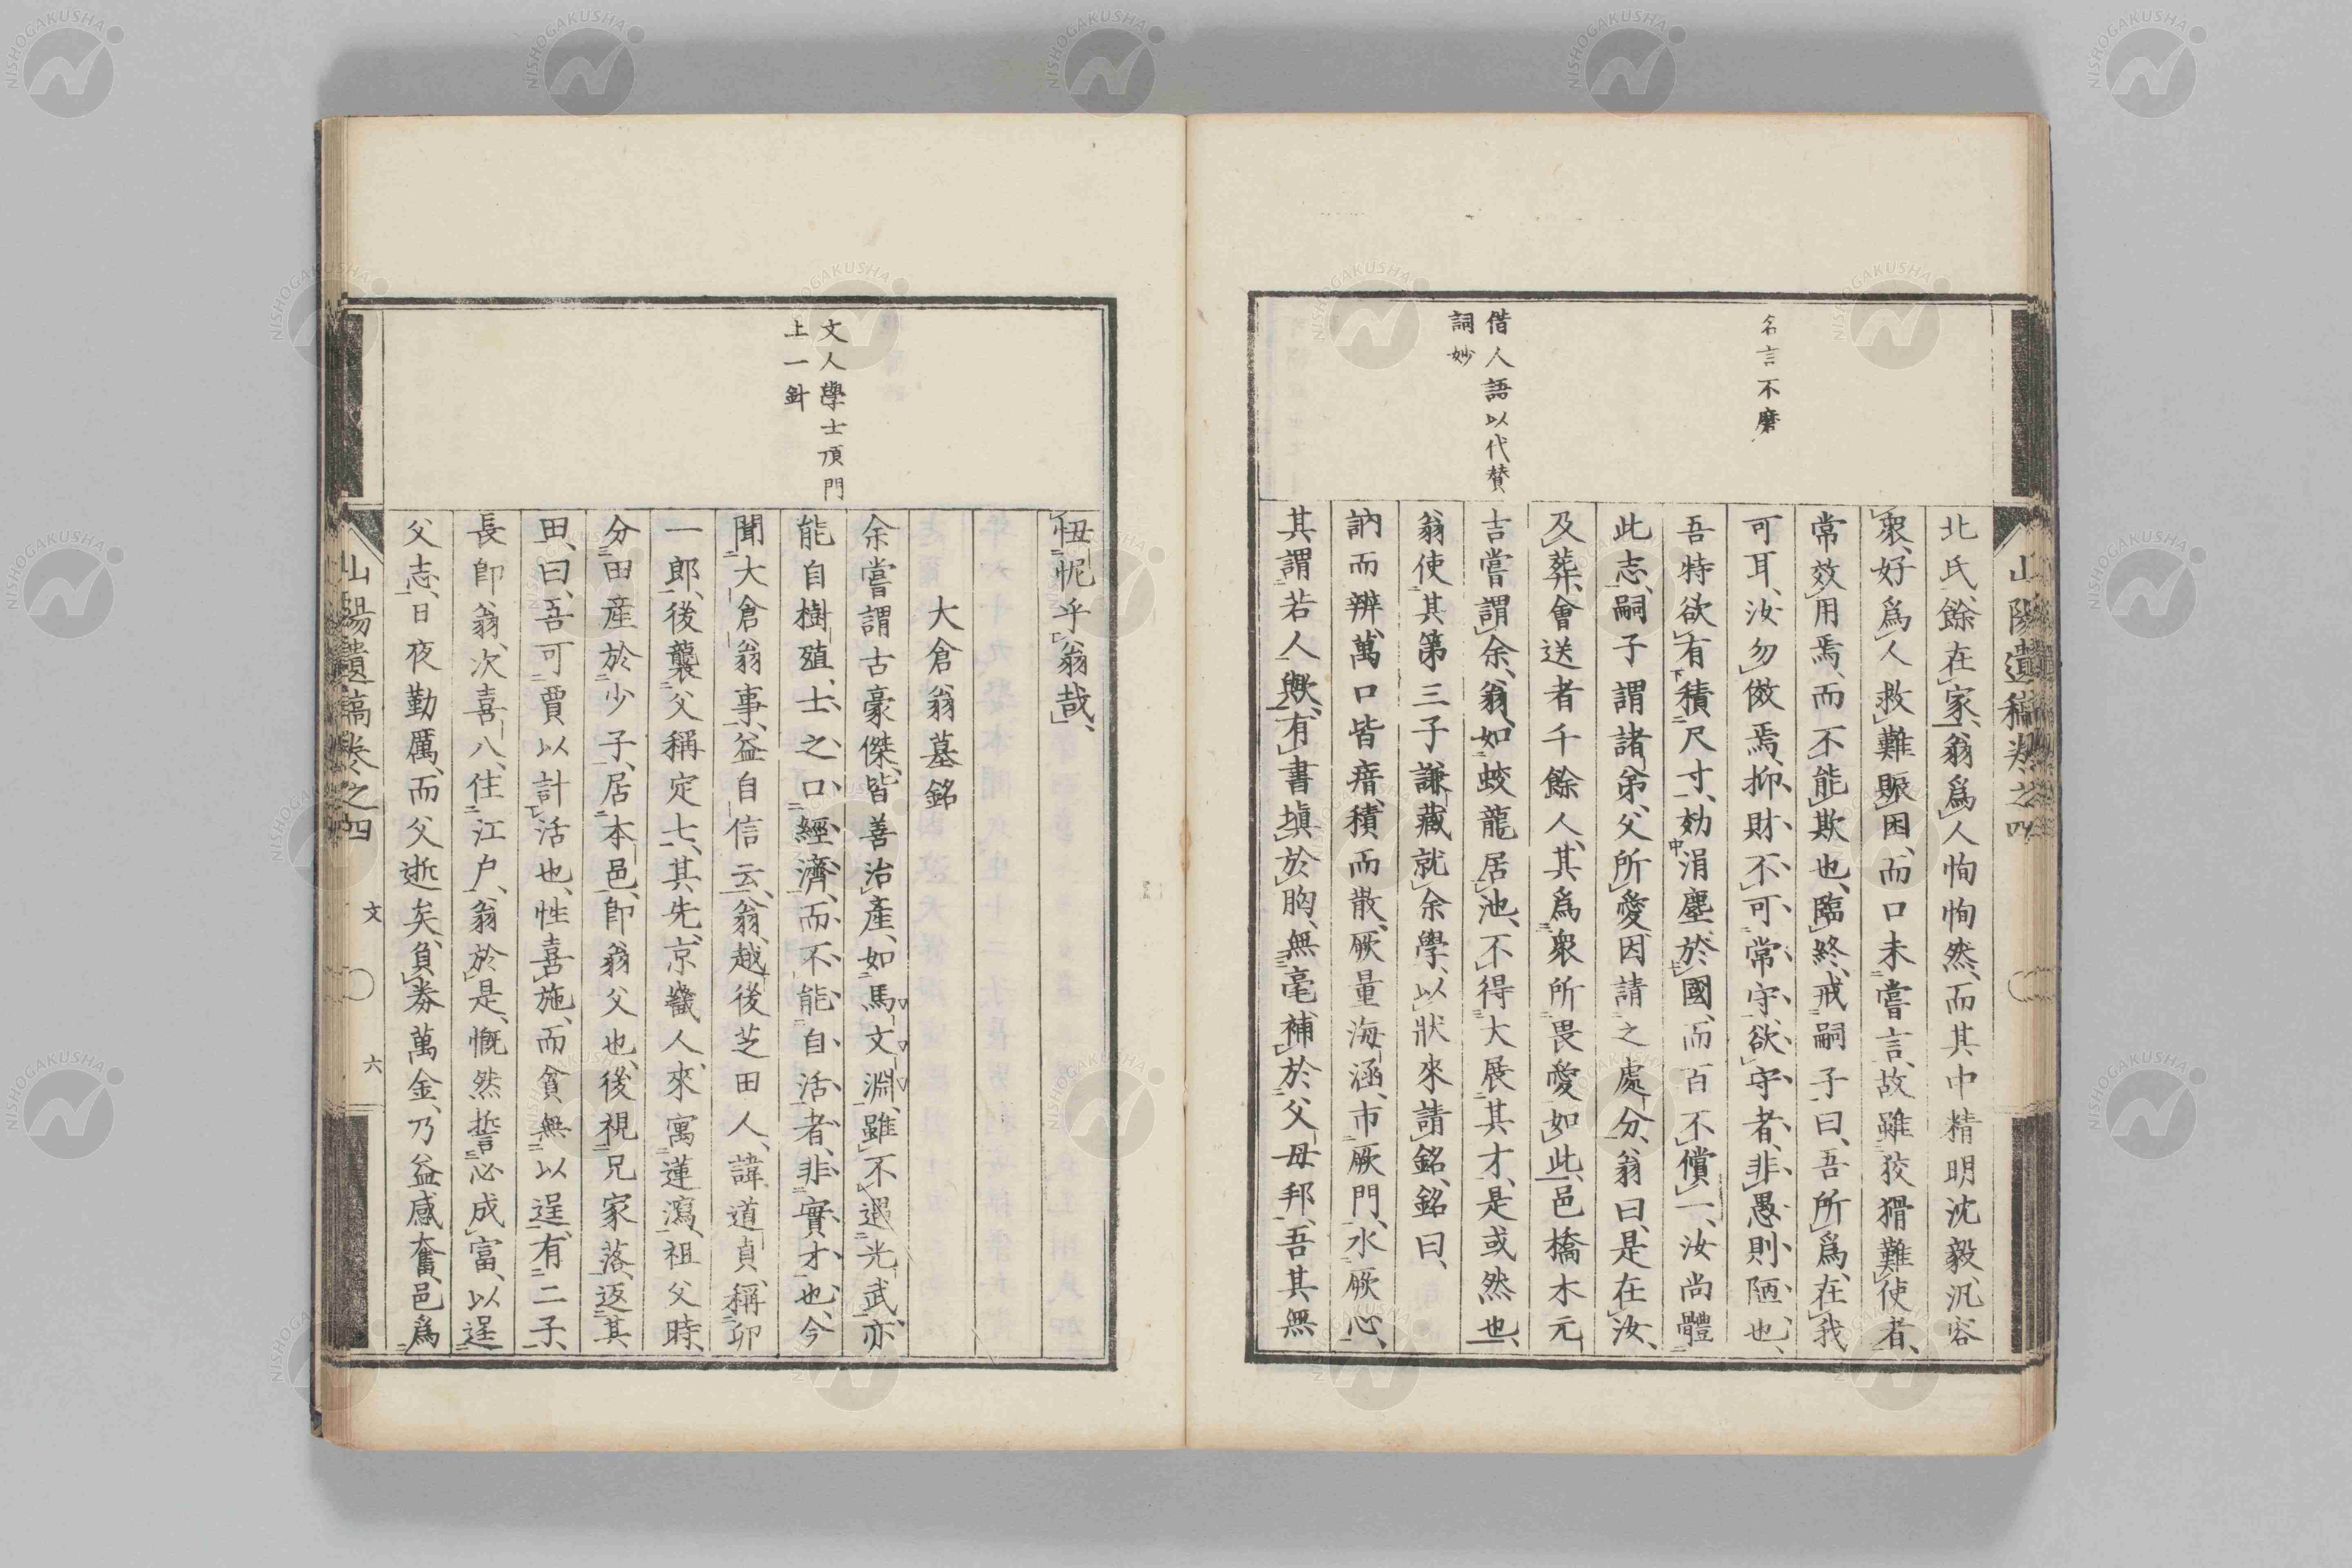 山陽遺稿卷之四
名言不磨
借人語以代贊
詞妙
北氏、餘在家、翁爲人恂恂然、而其中精明沈毅、汎容
衆、好爲人救難賑困、而口未嘗言、故雖狡猾難使者、
常效用焉、而不能欺也、臨終、戒嗣子曰、吾所爲、在我
可耳、汝勿倣焉、抑財不可常守、欲守者、非愚則陋也、
吾特欲有積尺寸、効涓塵於國、而百不償一、汝尚體
此志、嗣子謂諸弟、父所愛、因請之處分、翁曰、是在汝、
及葬、會送者千餘人、其爲衆所畏愛如此、邑橋木元
吉嘗謂余、翁如蛟龍居池、不得大展其才、是或然也、
翁使其第三子謙藏就余學、以狀來請銘、銘曰、
訥而辨、萬口皆瘖、積而散、厥量海涵、市厥門、水厥心、
其謂若人歟、有書塡於胸、無毫補於父母邦、吾其無
文人學士頂門
上一針
忸怩乎翁哉、
大倉翁墓銘
余嘗謂古豪傑、皆善治產、如馬文淵、雖不遇光武、亦
能自樹殖、士之口經濟、而不能自活者、非實才也、今
聞大倉翁事、益自信云、翁、越後芝田人、諱道貞、稱卯
一郎、後襲父稱定七、其先、京畿人、來寓蓮瀉、祖父時、
分田產於少子、居本邑、卽翁父也、後視兄家落、返其
田、曰、吾可賈以計活也、性喜施、而貧無以逞、有二子、
長卽翁、次喜八、住江戶、翁於是、慨然誓必成富、以逞
父志、日夜勤厲、而父逝矣、負券萬金、乃益感奮、邑爲
山陽遺稿卷之四
文
六